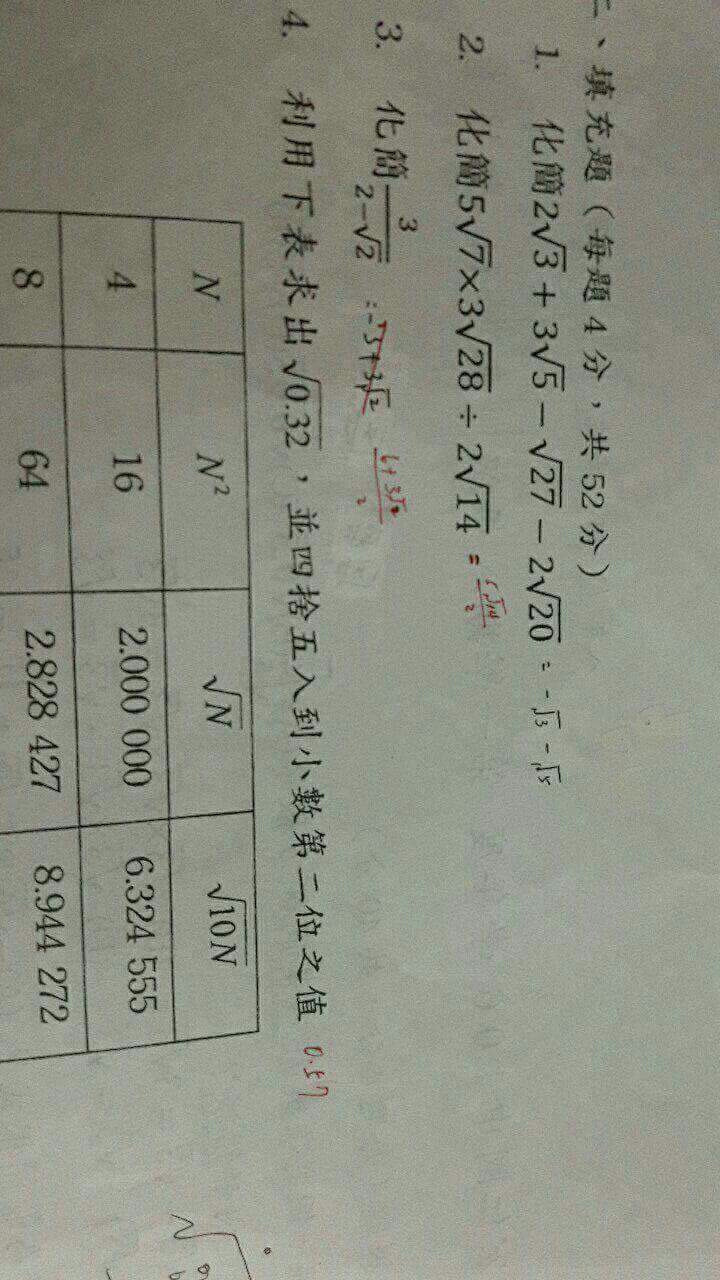 二、填充題（每題 4 分，共 52 分）
1. 化簡2√3+3√5−√27−2√20 = -√3 -√5
2. 化簡5√7×3√28÷2√14 =
3. 化簡 3/(2−√2) = -3+3√2 (6+3√2)/2
4. 利用下表求出√0.32，並四捨五入到小數第二位之值 0.57
N N² √N √10N
4 16 2.000 000 6.324 555
8 64 2.828 427 8.944 272